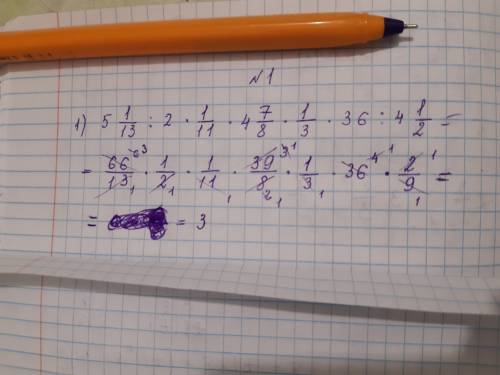 №1
1) 5 1/13 : 2 · 1/11 · 4 7/8 · 1/3 · 36 : 4 1/2 =
= 66/13 · 1/2 · 1/11 · 39/8 · 1/3 · 36 · 2/9 =
= = 3